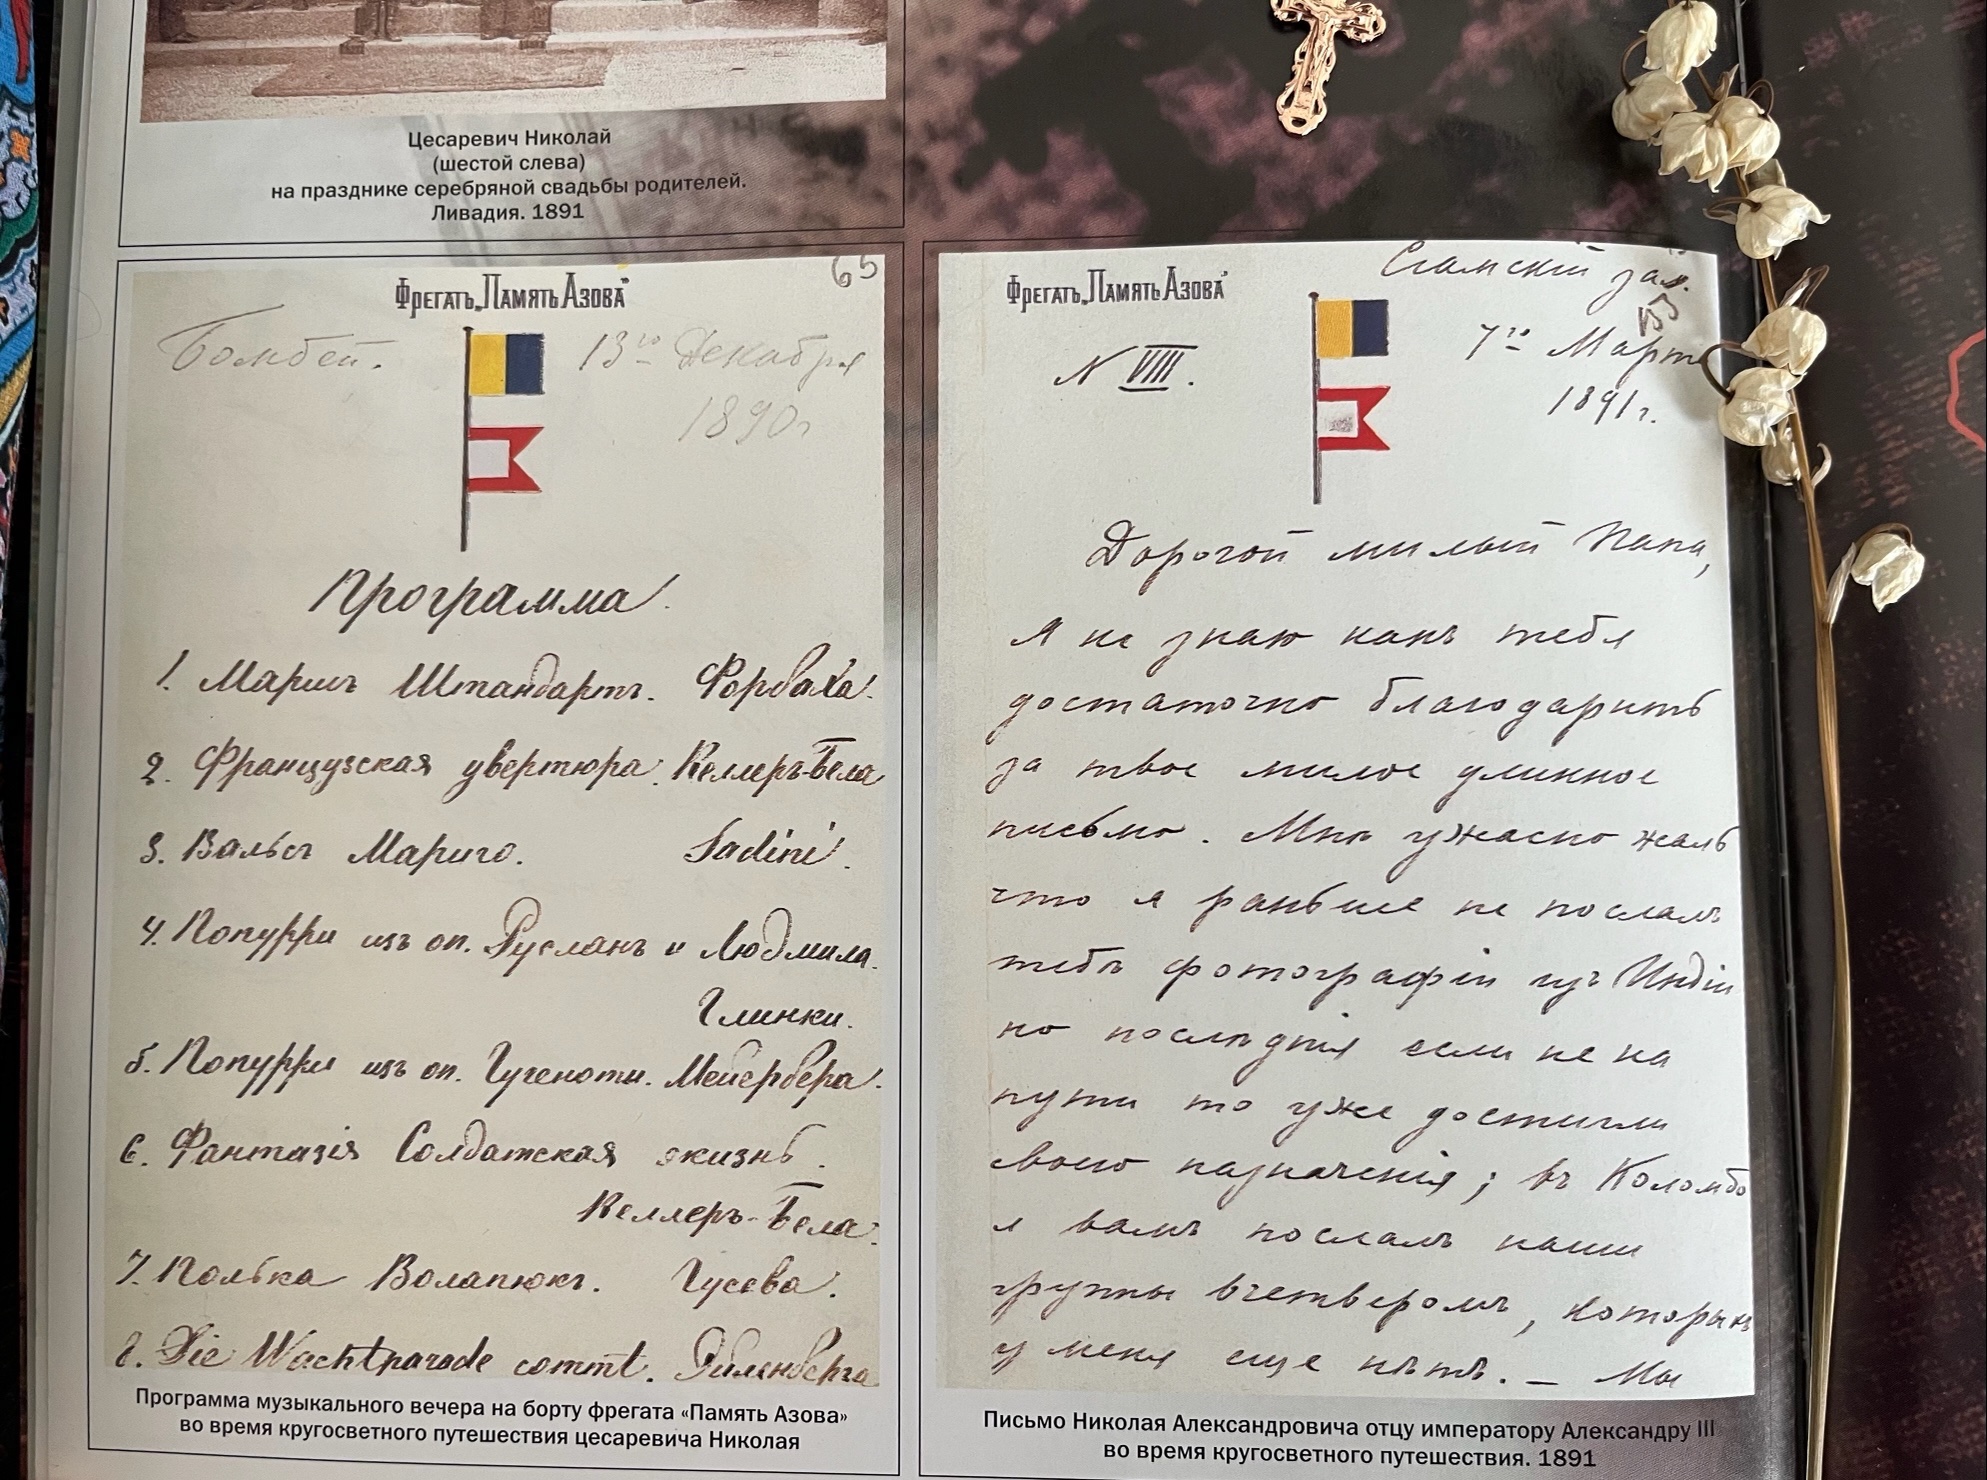 Цесаревич Николай
(шестой слева)
на празднике серебряной свадьбы родителей.
Ливадия. 1891
65
Фрегатъ „Память Азова”
Бомбей. 13го Декабря
1890г
Программа.
1. Маршъ Штандартъ. Форбаха.
2. Французская увертюра. Келлеръ-Бела
3. Вальсъ Мариго. Sadini.
4. Попурри изъ оп. Русланъ и Людмила.
Глинки.
5. Попурри изъ оп. Гугеноты. Мейербера.
6. Фантазія Солдатская жизнь.
Келлеръ-Бела.
7. Полька Волапюкъ. Гусева.
8. Die Wachtparade commt. Эйленберга
Программа музыкального вечера на борту фрегата «Память Азова»
во время кругосветного путешествия цесаревича Николая
Фрегатъ „Память Азова”
Сіамскій зал.
N VIII. 7го Марта
1891г.
Дорогой милый Папа,
Я не знаю какъ тебя
достаточно благодарить
за твое милое длинное
письмо. Мнѣ ужасно жаль
что я раньше не послалъ
тебѣ фотографіи изъ Индіи
но послѣднія если не на
пути то уже достигли
своего назначенія; въ Коломбо
я вамъ послалъ наши
группы вчетверомъ, которыхъ
у меня еще нѣтъ. — Мы
Письмо Николая Александровича отцу императору Александру III
во время кругосветного путешествия. 1891